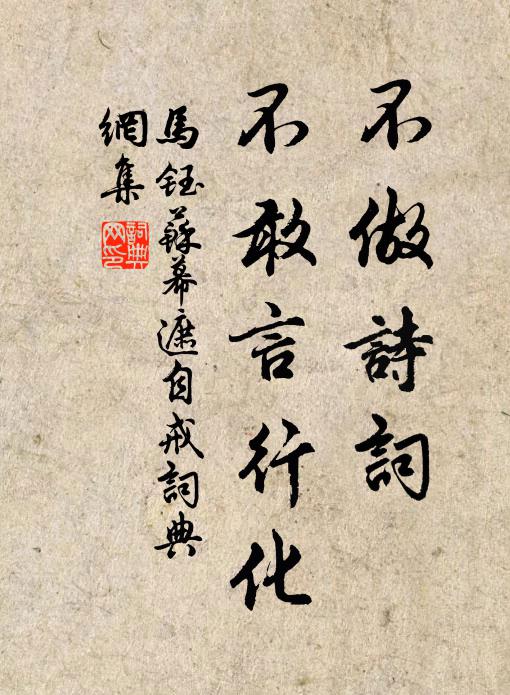 不做詩詞
不敢言行化
馬鈺蘇幕遮自戒詞典
網集
詞典
网印